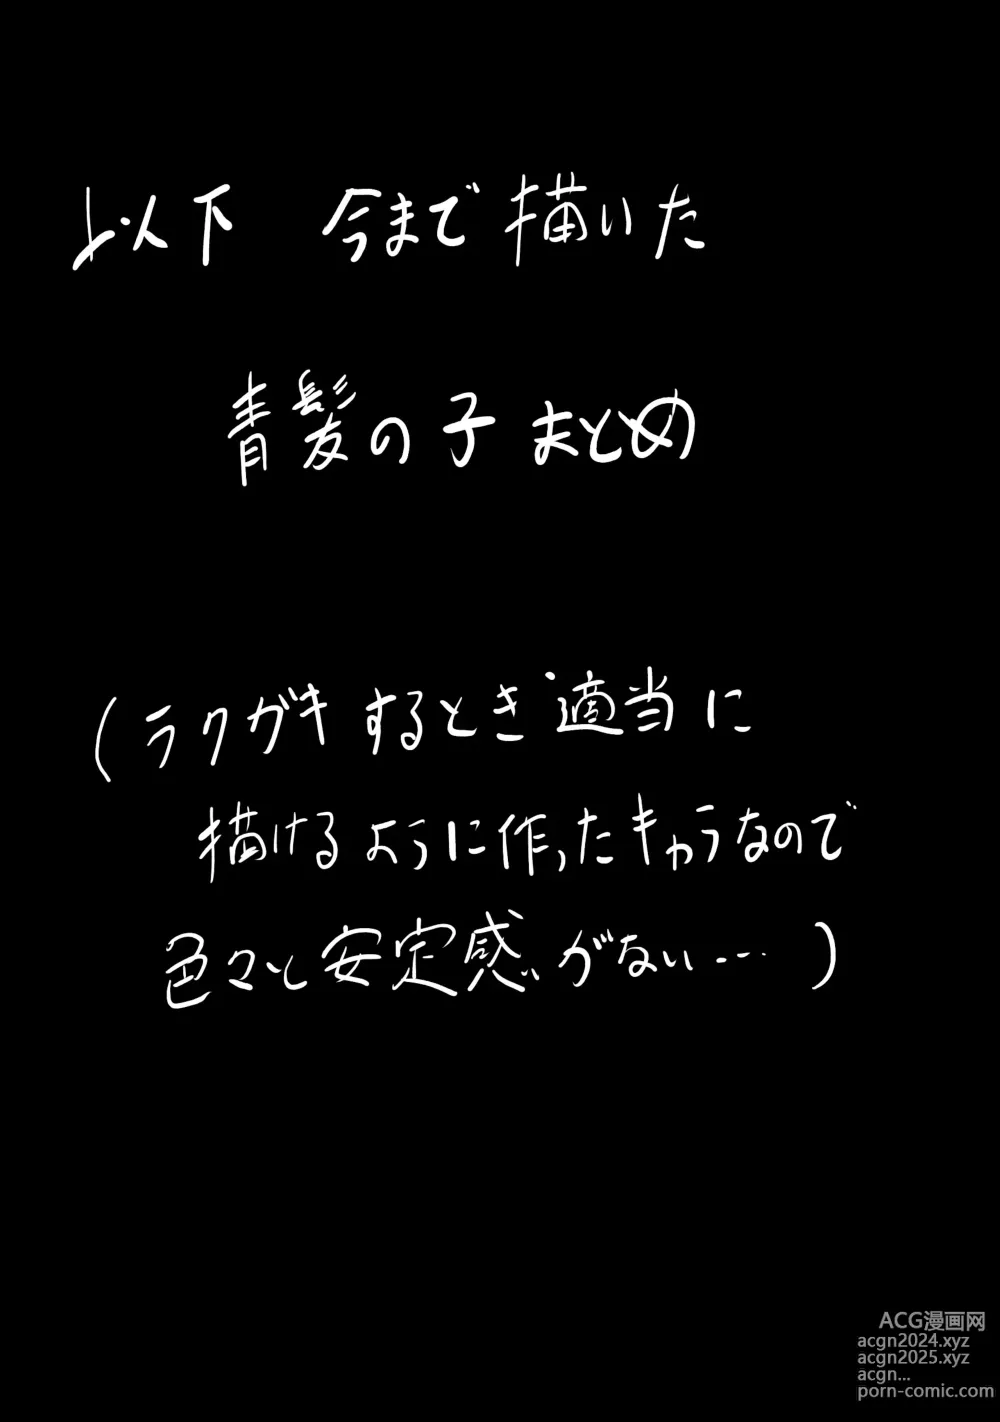 以下 今まで描いた
青髪の子まとめ
(ラクガキするとき適当に
描けるように作ったキャラなので
色々と安定感がない…)
ACG漫画网
acgn2024.xyz
acgn2025.xyz
acgn...
porn-comic.com